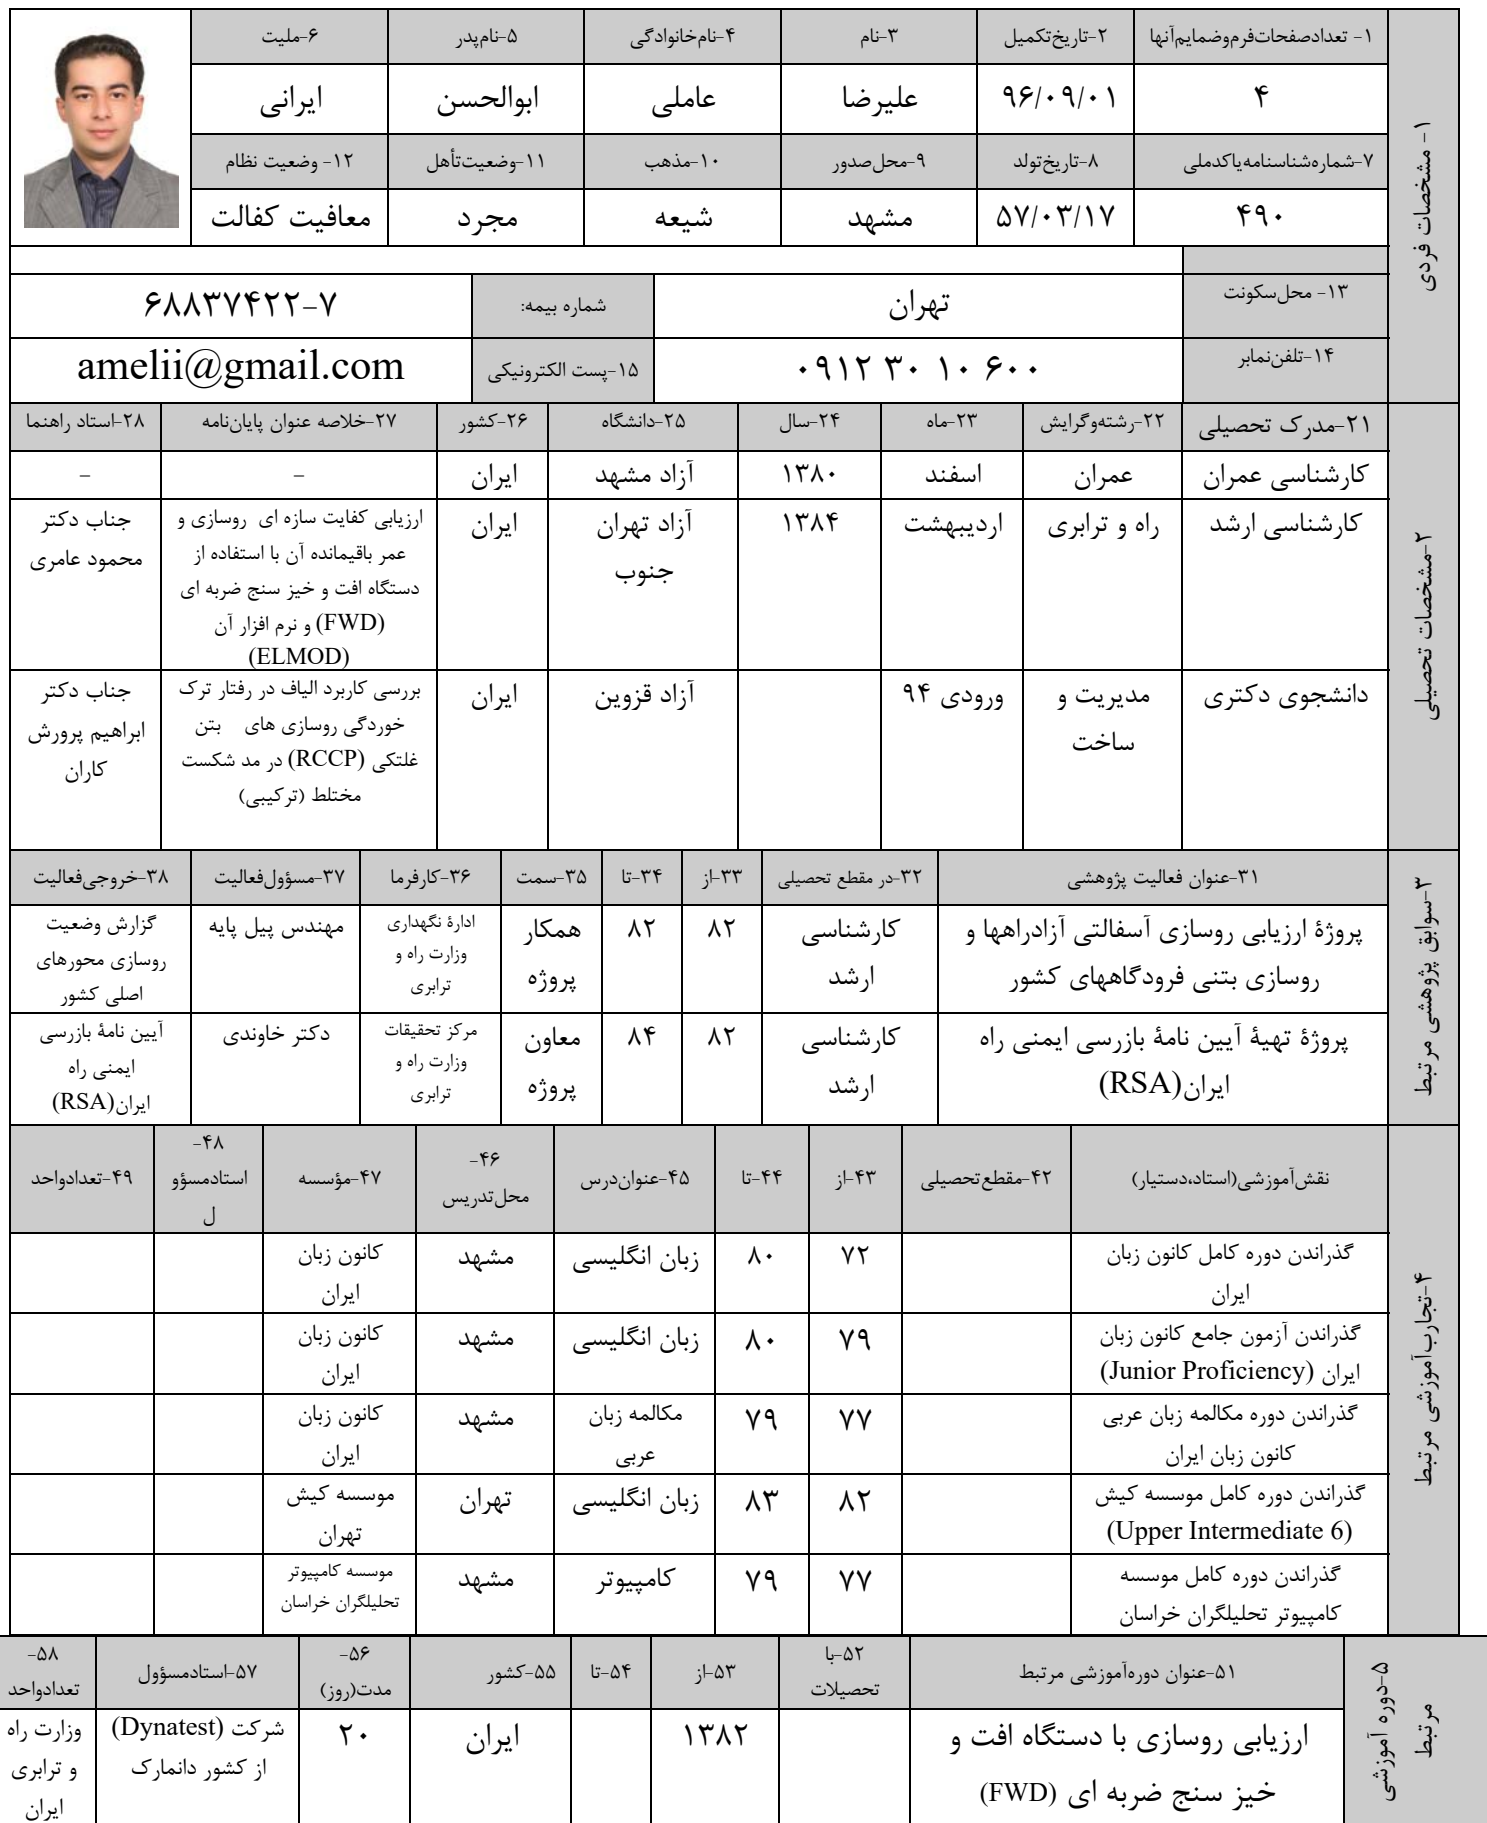 ۱- مشخصات فردی
۱- تعدادصفحات‌فرم‌وضمایم‌آنها
۲-تاریخ‌تکمیل
۳-نام
۴-نام‌خانوادگی
۵-نام‌پدر
۶-ملیت
۴
۹۶/۰۹/۰۱
علیرضا
عاملی
ابوالحسن
ایرانی
۷-شماره‌شناسنامه‌یاکدملی
۸-تاریخ‌تولد
۹-محل‌صدور
۱۰-مذهب
۱۱-وضعیت‌تأهل
۱۲- وضعیت نظام
۴۹۰
۵۷/۰۳/۱۷
مشهد
شیعه
مجرد
معافیت کفالت
۱۳- محل‌سکونت
تهران
شماره بیمه:
۶۸۸۳۷۴۲۲-۷
۱۴-تلفن‌نمابر
۰۹۱۲ ۳۰ ۱۰ ۶۰۰
۱۵-پست الکترونیکی
amelii@gmail.com
۲-مشخصات تحصیلی
۲۱-مدرک تحصیلی
۲۲-رشته‌وگرایش
۲۳-ماه
۲۴-سال
۲۵-دانشگاه
۲۶-کشور
۲۷-خلاصه عنوان پایان‌نامه
۲۸-استاد راهنما
کارشناسی عمران
عمران
اسفند
۱۳۸۰
آزاد مشهد
ایران
–
–
کارشناسی ارشد
راه و ترابری
اردیبهشت
۱۳۸۴
آزاد تهران
جنوب
ایران
ارزیابی کفایت سازه ای روسازی و
عمر باقیمانده آن با استفاده از
دستگاه افت و خیز سنج ضربه ای
(FWD) و نرم افزار آن
(ELMOD)
جناب دکتر
محمود عامری
دانشجوی دکتری
مدیریت و
ساخت
ورودی ۹۴
آزاد قزوین
ایران
بررسی کاربرد الیاف در رفتار ترک
خوردگی روسازی های بتن
غلتکی (RCCP) در مد شکست
مختلط (ترکیبی)
جناب دکتر
ابراهیم پرورش
کاران
۳-سوابق پژوهشی مرتبط
۳۱-عنوان فعالیت پژوهشی
۳۲-در مقطع تحصیلی
۳۳-از
۳۴-تا
۳۵-سمت
۳۶-کارفرما
۳۷-مسؤول‌فعالیت
۳۸-خروجی‌فعالیت
پروژهٔ ارزیابی روسازی آسفالتی آزادراهها و
روسازی بتنی فرودگاههای کشور
کارشناسی
ارشد
۸۲
۸۲
همکار
پروژه
ادارهٔ نگهداری
وزارت راه و
ترابری
مهندس پیل پایه
گزارش وضعیت
روسازی محورهای
اصلی کشور
پروژهٔ تهیهٔ آیین نامهٔ بازرسی ایمنی راه
ایران(RSA)
کارشناسی
ارشد
۸۲
۸۴
معاون
پروژه
مرکز تحقیقات
وزارت راه و
ترابری
دکتر خاوندی
آیین نامهٔ بازرسی
ایمنی راه
ایران(RSA)
۴-تجارب‌آموزشی مرتبط
نقش‌آموزشی(استاد،دستیار)
۴۲-مقطع‌تحصیلی
۴۳-از
۴۴-تا
۴۵-عنوان‌درس
۴۶-
محل‌تدریس
۴۷-مؤسسه
۴۸-
استادمسؤو
ل
۴۹-تعدادواحد
گذراندن دوره کامل کانون زبان
ایران
۷۲
۸۰
زبان انگلیسی
مشهد
کانون زبان
ایران
گذراندن آزمون جامع کانون زبان
ایران (Junior Proficiency)
۷۹
۸۰
زبان انگلیسی
مشهد
کانون زبان
ایران
گذراندن دوره مکالمه زبان عربی
کانون زبان ایران
۷۷
۷۹
مکالمه زبان
عربی
مشهد
کانون زبان
ایران
گذراندن دوره کامل موسسه کیش
(Upper Intermediate 6)
۸۲
۸۳
زبان انگلیسی
تهران
موسسه کیش
تهران
گذراندن دوره کامل موسسه
کامپیوتر تحلیلگران خراسان
۷۷
۷۹
کامپیوتر
مشهد
موسسه کامپیوتر
تحلیلگران خراسان
۵-دوره آموزشی
مرتبط
۵۱-عنوان دوره‌آموزشی مرتبط
۵۲-با
تحصیلات
۵۳-از
۵۴-تا
۵۵-کشور
۵۶-
مدت(روز)
۵۷-استادمسؤول
۵۸-
تعدادواحد
ارزیابی روسازی با دستگاه افت و
خیز سنج ضربه ای (FWD)
۱۳۸۲
ایران
۲۰
شرکت (Dynatest)
از کشور دانمارک
وزارت راه
و ترابری
ایران